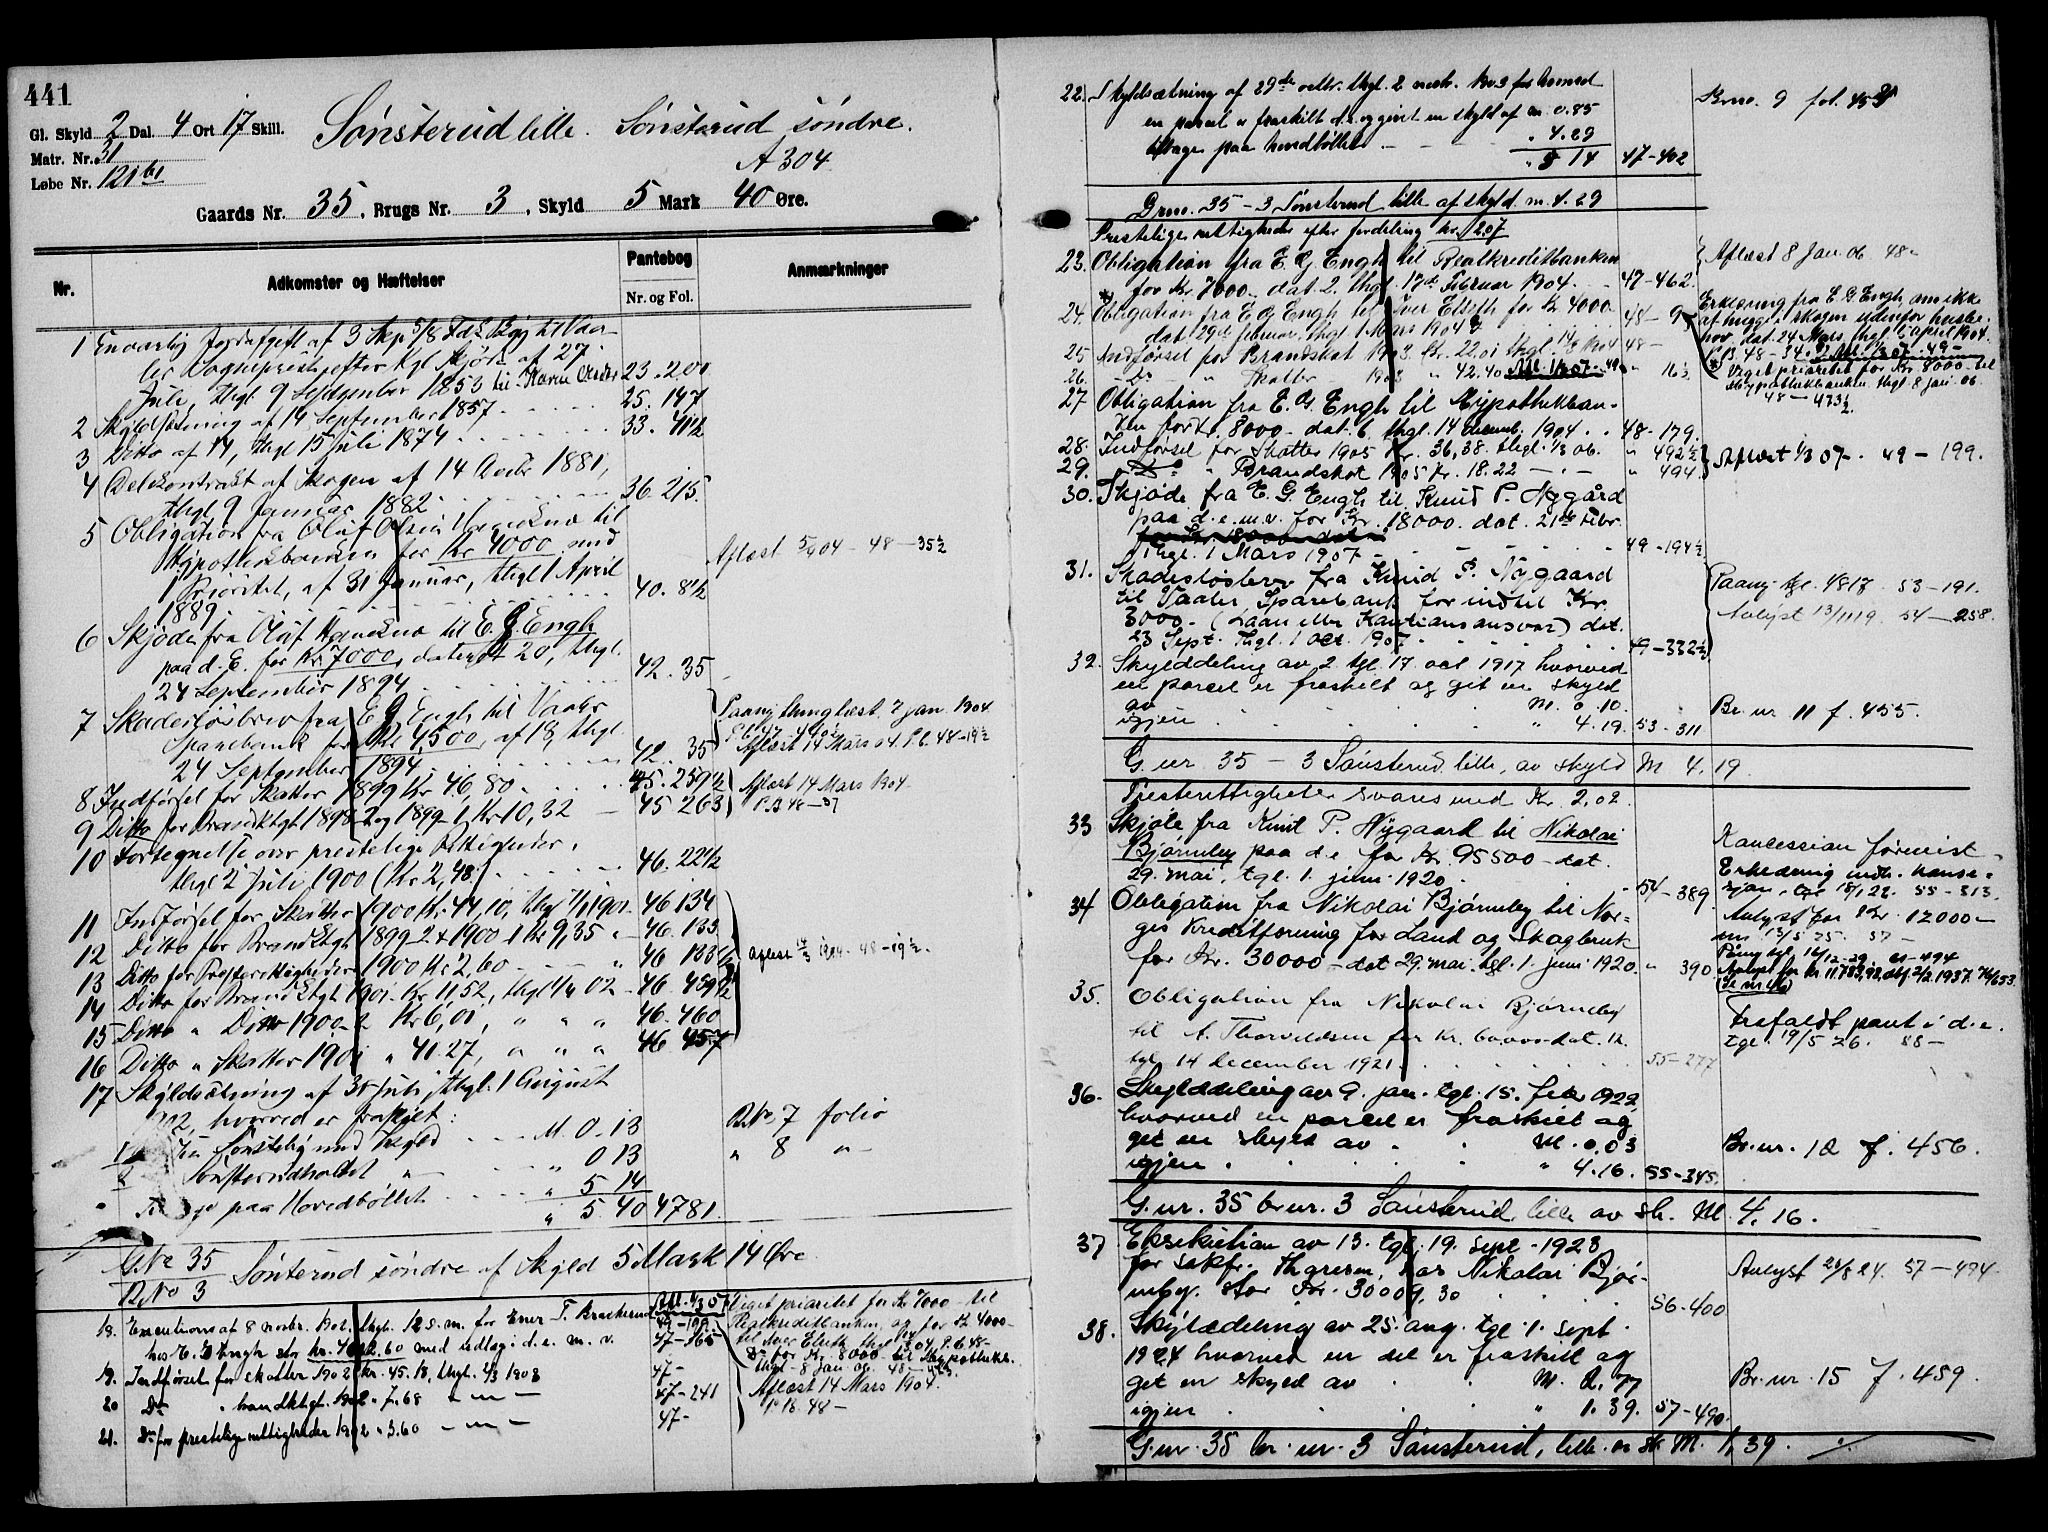 441
Gl. Skyld 2 Dal. 4 Ort 17 Skill.
Matr. Nr. 31
Løbe Nr. 121 b1
Sønsterud lille. Sønsterud søndre.
A 304
Gaards Nr. 35, Brugs Nr. 3, Skyld 5 Mark 40 Øre.
Nr. Adkomster og Hæftelser Pantebog Anmærkninger
Nr. og Fol.
1 Envarlig Jordafgift af 3 Skp 5/8 Fdk Byg til Vaa-
ler Sogneprest, efter Kgl Skjøde af 27
Juli, thgl 9 September 1853 til 23. 200
2 Skyldsætning af 14 September 1857 25. 147
3 Ditto af 14, thgl 15 juli 1874 33. 41½
4 Delekontrakt af Skogen af 14 Decbr 1881,
thgl 9 Januar 1882 36. 215
5 Obligation fra Oluf Olsen til
Hypothekbanken for Kr 4000 med Aflæst 5/9 04 - 48 - 35½
Prioritet, af 31 januar, thgl 1 April
1889. 40. 8½
6 Skjøde fra Oluf til E. G. Engh
paa d. E. for Kr. 7000, dateret 20, thgl.
24 September 1894 42. 35
7 Skadesløsbrev fra E G Engh til Vaaler Paanyt thinglæst 7 jan. 1904
Sparebank for Kr 4,500, af 18, thgl. P.b. 47 - 440½
24 September 1894 42. 35 Aflæst 14 Mars 04. P.b. 48 - 19½
8 Indførsel for Skatter 1899 Kr 46,80 45. 259½ Aflæst 14 Mars 1904
9 Ditto for Brandktgt 1898-2 og 1899-1, Kr 10,32 45 263 P.B 48 - 37
10 Fortegnelse over prestelige Rettigheder,
thgl 2 Juli 1900 (Kr 2,48.) 46. 22½
11 Indførsel for Skatter 1900 Kr. 44,10, thgl 7/1 1901 46 134
12 Ditto for Brandktgt 1899-2 & 1900-1 Kr 9,35 " 46. 133
13 Ditto for Presterettigheder 1900 Kr 2,60 " 46 133½ aflæst 14/3 1904 - 48 - 19½.
14 Ditto for Brandktgt 1901 Kr. 11.52, thgl 1/4 02 46. 459½
15 Ditto " Ditto 1900-2 Kr 6,01, " " " 46. 460
16 Ditto " Skatter 1901 " 41.27, " " " 46 457
17 Skyldsætning af 30 juli, thgl. 1 August
1902, hvorved er fraskilt:
Sønsteby med Skyld M. 0.13 B.No 7 folio
2 Sønsterudholdet " " 0 13 " 8 "
Tilbage paa Hovedbøllet " 5 14
" 5.40 47 81
G.No 35
B.No 3 Sønsterud søndre af Skyld 5 Mark 14 Øre
18. Executions af 8 novbr. 1902, thgl. 12 s. m. for Ener T. Braskerud
hos E. G. Engh stor kr. med udlæg i d. e. m. v. 47-165
19. Indførsel for skatter 1902 kr. 45.18, thgl. 4/3 1903 47-
20 Do " brandktgt. 1902 " 7.68 " — " — 47-241
21. Do for prestelige rettigheder 1902 " 3.60 — " — 47-
Viget prioritet for Kr 7000 - til
Realkreditbanken, og for Kr 4000 -
til Iver Elseth P.b 48 -
Do for Kr. 8000 - til Hypothekb.
thgl. 8 Jan 06. 48 -
Aflæst 14 Mars 1904.
P.B. 48 -
22. Skyldsætning af 29de octbr. thgl. 2 novbr. 1903 for hvorved Brno. 9 fol. 45
en parcel er fraskilt d. e. og givet en skyld af m. 0.85
" 4.29
tilbage paa hovedbøllet " 5 14 47-402
Grno. 35 - 3 Sønsterud lille af skyld m. 4.29
Prestelige rettigheder efter fordeling kr. 2.07
23. Obligation fra E. G Engh til Realkreditbanken Aflæst 8 Jan 06 48 -
for Kr. 7000 - dat. 2. thgl. 17de Februar 1904. 47-462.
24. Obligation fra E G Engh til Iver Elseth for Kr 4000
dat. 29de februar, thgl 1 Mars 1904 48 - 9
Erklæring fra E G Engh om ikke
at hugge i skogen udenfor husbe-
hov, dat. 24 Mars, thgl. 5 april 1904.
P.B. 48 - 34.
Viget prioritet for Kr 8000 - til
Hypothekbanken thgl. 8 jan. 06.
48 — 473½.
25 Indførsel for Brandskat 1903. Kr. 22.01 thgl. 1904 48 -
26. " Do " " Skatter 1903 " 42.40 " 16½
27 Obligation fra E. G. Engh til Hypothekban-
ken for kr. 8000 - dat. 6. thgl. 14 decemb. 1904. 48-179.
28. Indførsel for Skatter 1905 Kr. 36,38. thgl. 1/3 06. " 492½ Aflæst 1/3 07. 49 - 199.
29. Do " Brandskat 1905 Kr. 18.22 — " — " 494
30. Skjøde fra E. G. Engh til Knud P. Nygård
paa d. e. m. v. for Kr. 18000. dat. 21de Febr.
for Kr. 18000 - dat
Thgl. 1 Mars 1907 - 49-194½
31. Skadesløsbrev fra Knud P. Nygaard Paany tgl. 4/8 17 53-191.
til Vaaler Sparebank for indtil Kr.
3000 - (Laan eller Kautionsansvar) dat. Avlyst 13/11 19. 54 - 258.
23 Sept. Thgl. 1 Oct. 1907 49-332½
32. Skylddeling av 2 tgl. 17. oct 1917 hvorved
en parcel er fraskilt og git en skyld
av M. 0.10. Br. nr 11 f. 455.
igjen " 4.19. 53-311
G. nr. 35 - 3 Sønsterud lille, av skyld M 4.19.
Presterettigheter svares med Kr. 2,02.
33 Skjøte fra Knut P. Nygaard til Nikolai Koncession forevist -
Bjørneby paa d. e. for Kr. 95500 - dat.
29. mai, tgl. 1. juni. 1920. 54 - 389
Erklæring indk. konse-
sjon, tgl 15/1 22. 55 - 313.
34 Obligation fra Nikolai Bjørneby til Nor- Avlyst for Kr. 12000 -
ges Kreditforening for Land og Skogbruk 13/5 25. 57 -
for Kr. 30000 - dat 29. mai. tgl. 1. juni 1920. " 390
35. Obligation fra Nikolai Bjørneby Frafaldt pant i d. e.
til A. Thorvildsen for Kr. 60,000 - dat. 12. tgl. 19/5 26. 58 -
tgl. 14 december 1921. 55-277
36. Skylddeling av 9. jan. tgl. 15. febr 1922,
hvorved en parcel er fraskilt og
get en skyld av M. 0.03 Br. nr. 12 f. 456.
igjen " 4.16. 55-345.
G. nr. 35 br. nr. 3 Sønsterud lille av sk. M. 4,16.
37 Eksekution av 13. tgl. 19. sept. 1923
for sakfr. Thoresen, hos Nikolai Bjør- Avlyst 26/8 24. 57 - 494.
neby. stor Kr. 30009.30 56-400
38. Skylddeling av 25. aug. tgl. 1. sept.
1924 hvorved en del er fraskilt og
get en skyld av M. 2,77 Br. nr. 15 f. 459.
igjen " 1.39. 57-490.
G. nr. 35 br. nr. 3 Sønsterud, lille av sk. M. 1,39.